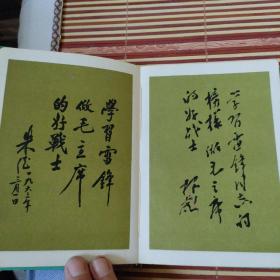 學習雷鋒
做毛主席
的好戰士
朱德
一九六三年
二月
学习雷锋同志的
榜样做毛主席
的好战士
林彪